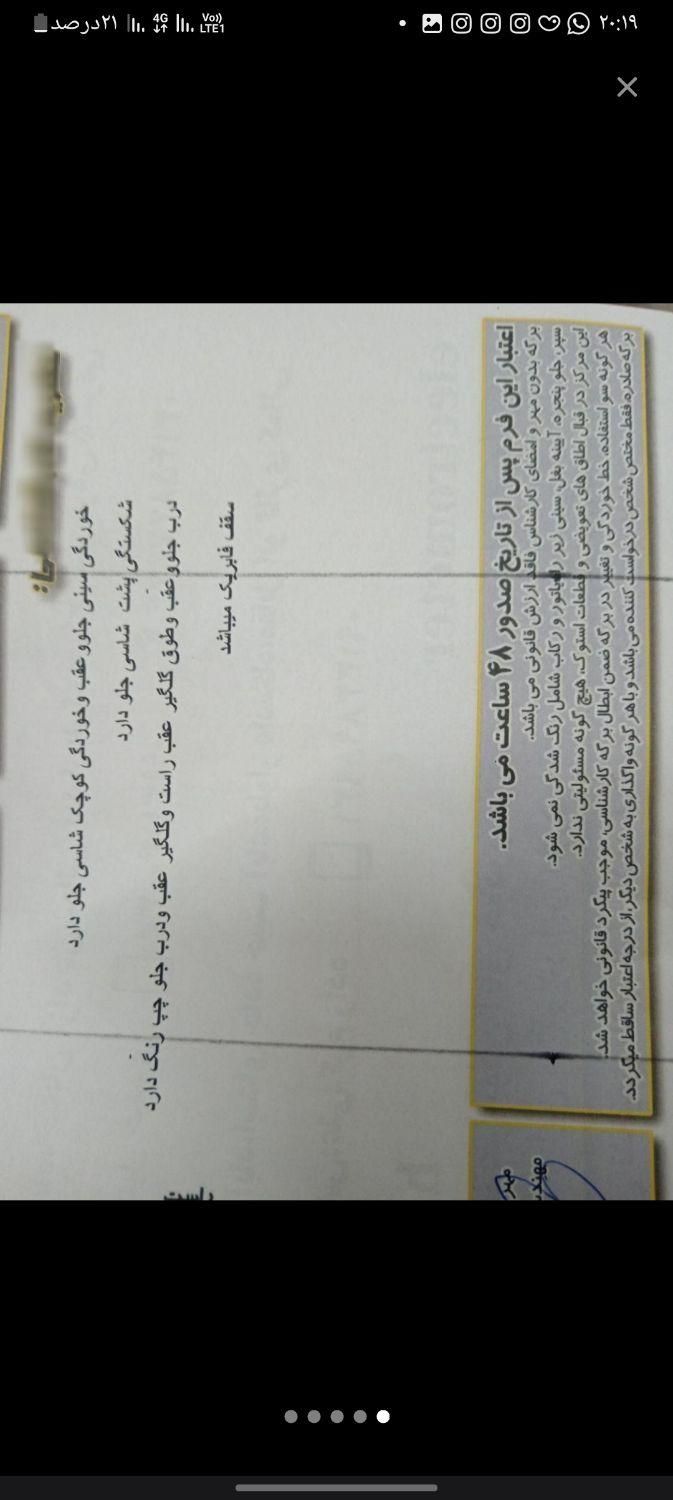 ۲۰:۱۹
Vo)) LTE1
4G
۲۱درصد
خوردگی سینی جلوو عقب وخوردگی کوچک شاسی جلو دارد
شکستگی پشت شاسی جلو دارد
درب جلوو عقب وطوق گلگیر عقب راست وگلگیر عقب ودرب جلو چپ رنگ دارد
سقف فابریک میباشد
اعتبار این فرم پس از تاریخ صدور ۴۸ ساعت می باشد.
برگه بدون مهر و امضای کارشناس فاقد ارزش قانونی می باشد.
سپر، جلو پنجره، آیینه بغل، سینی زیر رادیاتور و رکاب شامل رنگ شدگی نمی شود.
این مرکز در قبال اطاق های تعویضی و قطعات استوک، هیچ گونه مسئولیتی ندارد.
هر گونه سو استفاده، خط خوردگی و تغییر در برگه ضمن ابطال برگه کارشناسی، موجب پیگرد قانونی خواهد شد.
برگه صادره، فقط مختص شخص درخواست کننده می باشد و با هر گونه واگذاری به شخص دیگر، از درجه اعتبار ساقط میگردد.
مهر